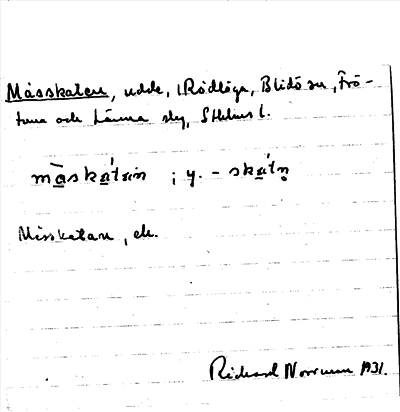 Måsskaten, udde, Rödlöga, Blidö sn, Frö-
tuna och Länna skg, Sthlms l.
måskátan ; y. - skátn̥
Måsskatan, ek.
Rickard Norrman 1931.